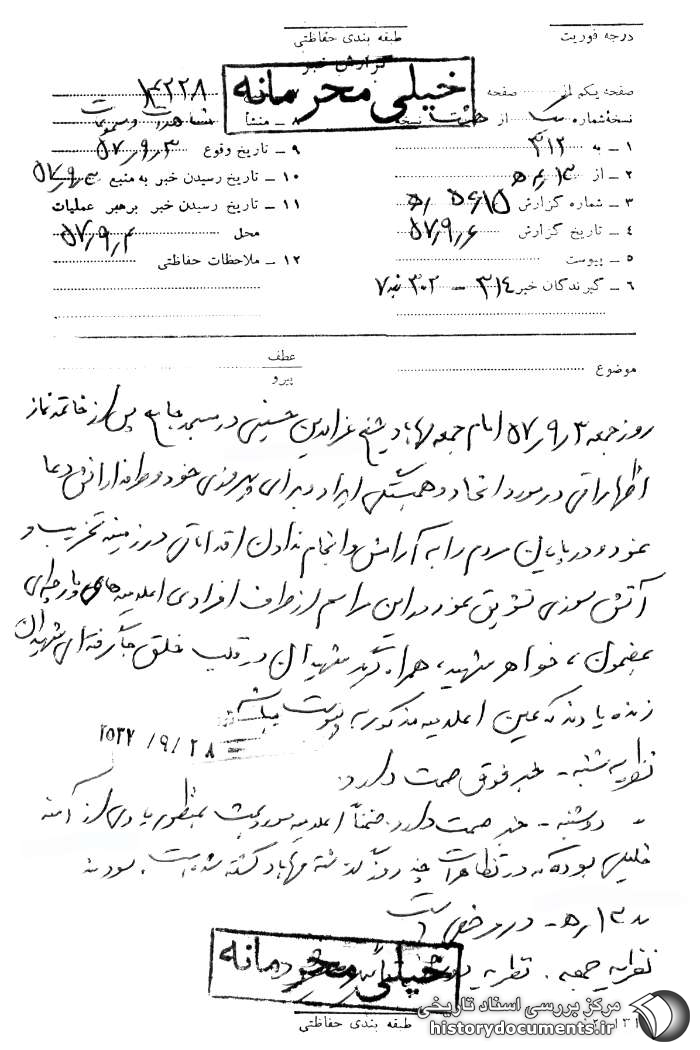 درجه فوریت
طبقه بندی حفاظتی
گزارش خبر
خیلی محرمانه
صفحه یکم از صفحه
نسخهٔ شماره یک از هشت نسخه
۱ ـ به ۳۱۲
۲ ـ از ۱۳ه۴
۳ ـ شماره گزارش
۴ ـ تاریخ گزارش ۵۷/۹/۶
۵ ـ پیوست
۶ ـ گیرندگان خبر ۳۱۴ ـ ۳۰۲
۱۴۲۲۸
۸ ـ منشأ مشاهدات و مسموعات
۹ ـ تاریخ وقوع ۵۷/۹/۳
۱۰ ـ تاریخ رسیدن خبر به منبع ۵۷/۹/۳
۱۱ ـ تاریخ رسیدن خبر برهبر عملیات
محل ۵۷/۹/۴
۱۲ ـ ملاحظات حفاظتی
موضوع
عطف
پیرو
روز جمعه ۵۷/۹/۳ امام جمعه مهاباد شیخ عزالدین حسینی در مسجد جامع پس از خاتمه نماز
اظهاراتی در مورد اتحاد و همبستگی ایراد و برای پیروزی خود و طرفدارانش دعا
نمود و در پایان مردم را به آرامش و انجام ندادن اقداماتی در زمینه تخریب و
آتش سوزی تشویق نمود در این مراسم از طرف افرادی اعلامیه هائی پارچه‌ای
بمضمون ، خواهر شهید ، همراه گرد شهیدان در قلب خلق جا گرفته‌ای شهیدان
زنده یادند که عین اعلامیه مذکور به پیوست میباشد
۲۵۳۷/۹/۲۸
نظریه شنبه ـ خبر فوق صحت دارد.
" دوشنبه ـ خبر صحت دارد. ضمناً اعلامیه مورد بحث بمنظور یادی از آمنه
خلیلی بوده که در تظاهرات چند روز گذشته مهاباد کشته شده است.
۱۳ه۴ ـ در مرخصی است
نظریه جمعه . نظریه
خیلی محرمانه
طبقه بندی حفاظتی
مرکز بررسی اسناد تاریخی
historydocuments.ir